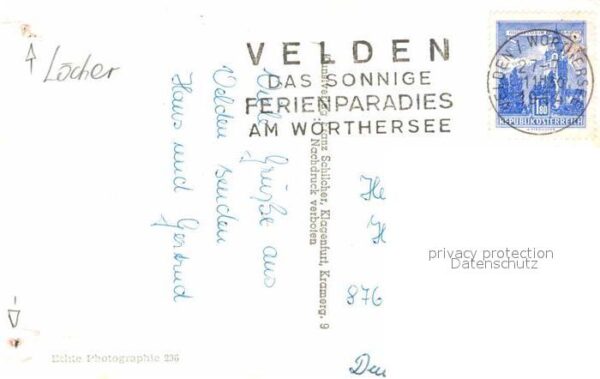 Löcher
VELDEN
DAS SONNIGE
FERIENPARADIES
AM WÖRTHERSEE
REPUBLIK ÖSTERREICH
Viele Grüße aus
Velden senden
Hans und Gertrud
Franz Schilcher, Klagenfurt, Kramerg. 9
Nachdruck verboten
He
H
876
Den
privacy protection
Datenschutz
Echte Photographie 236